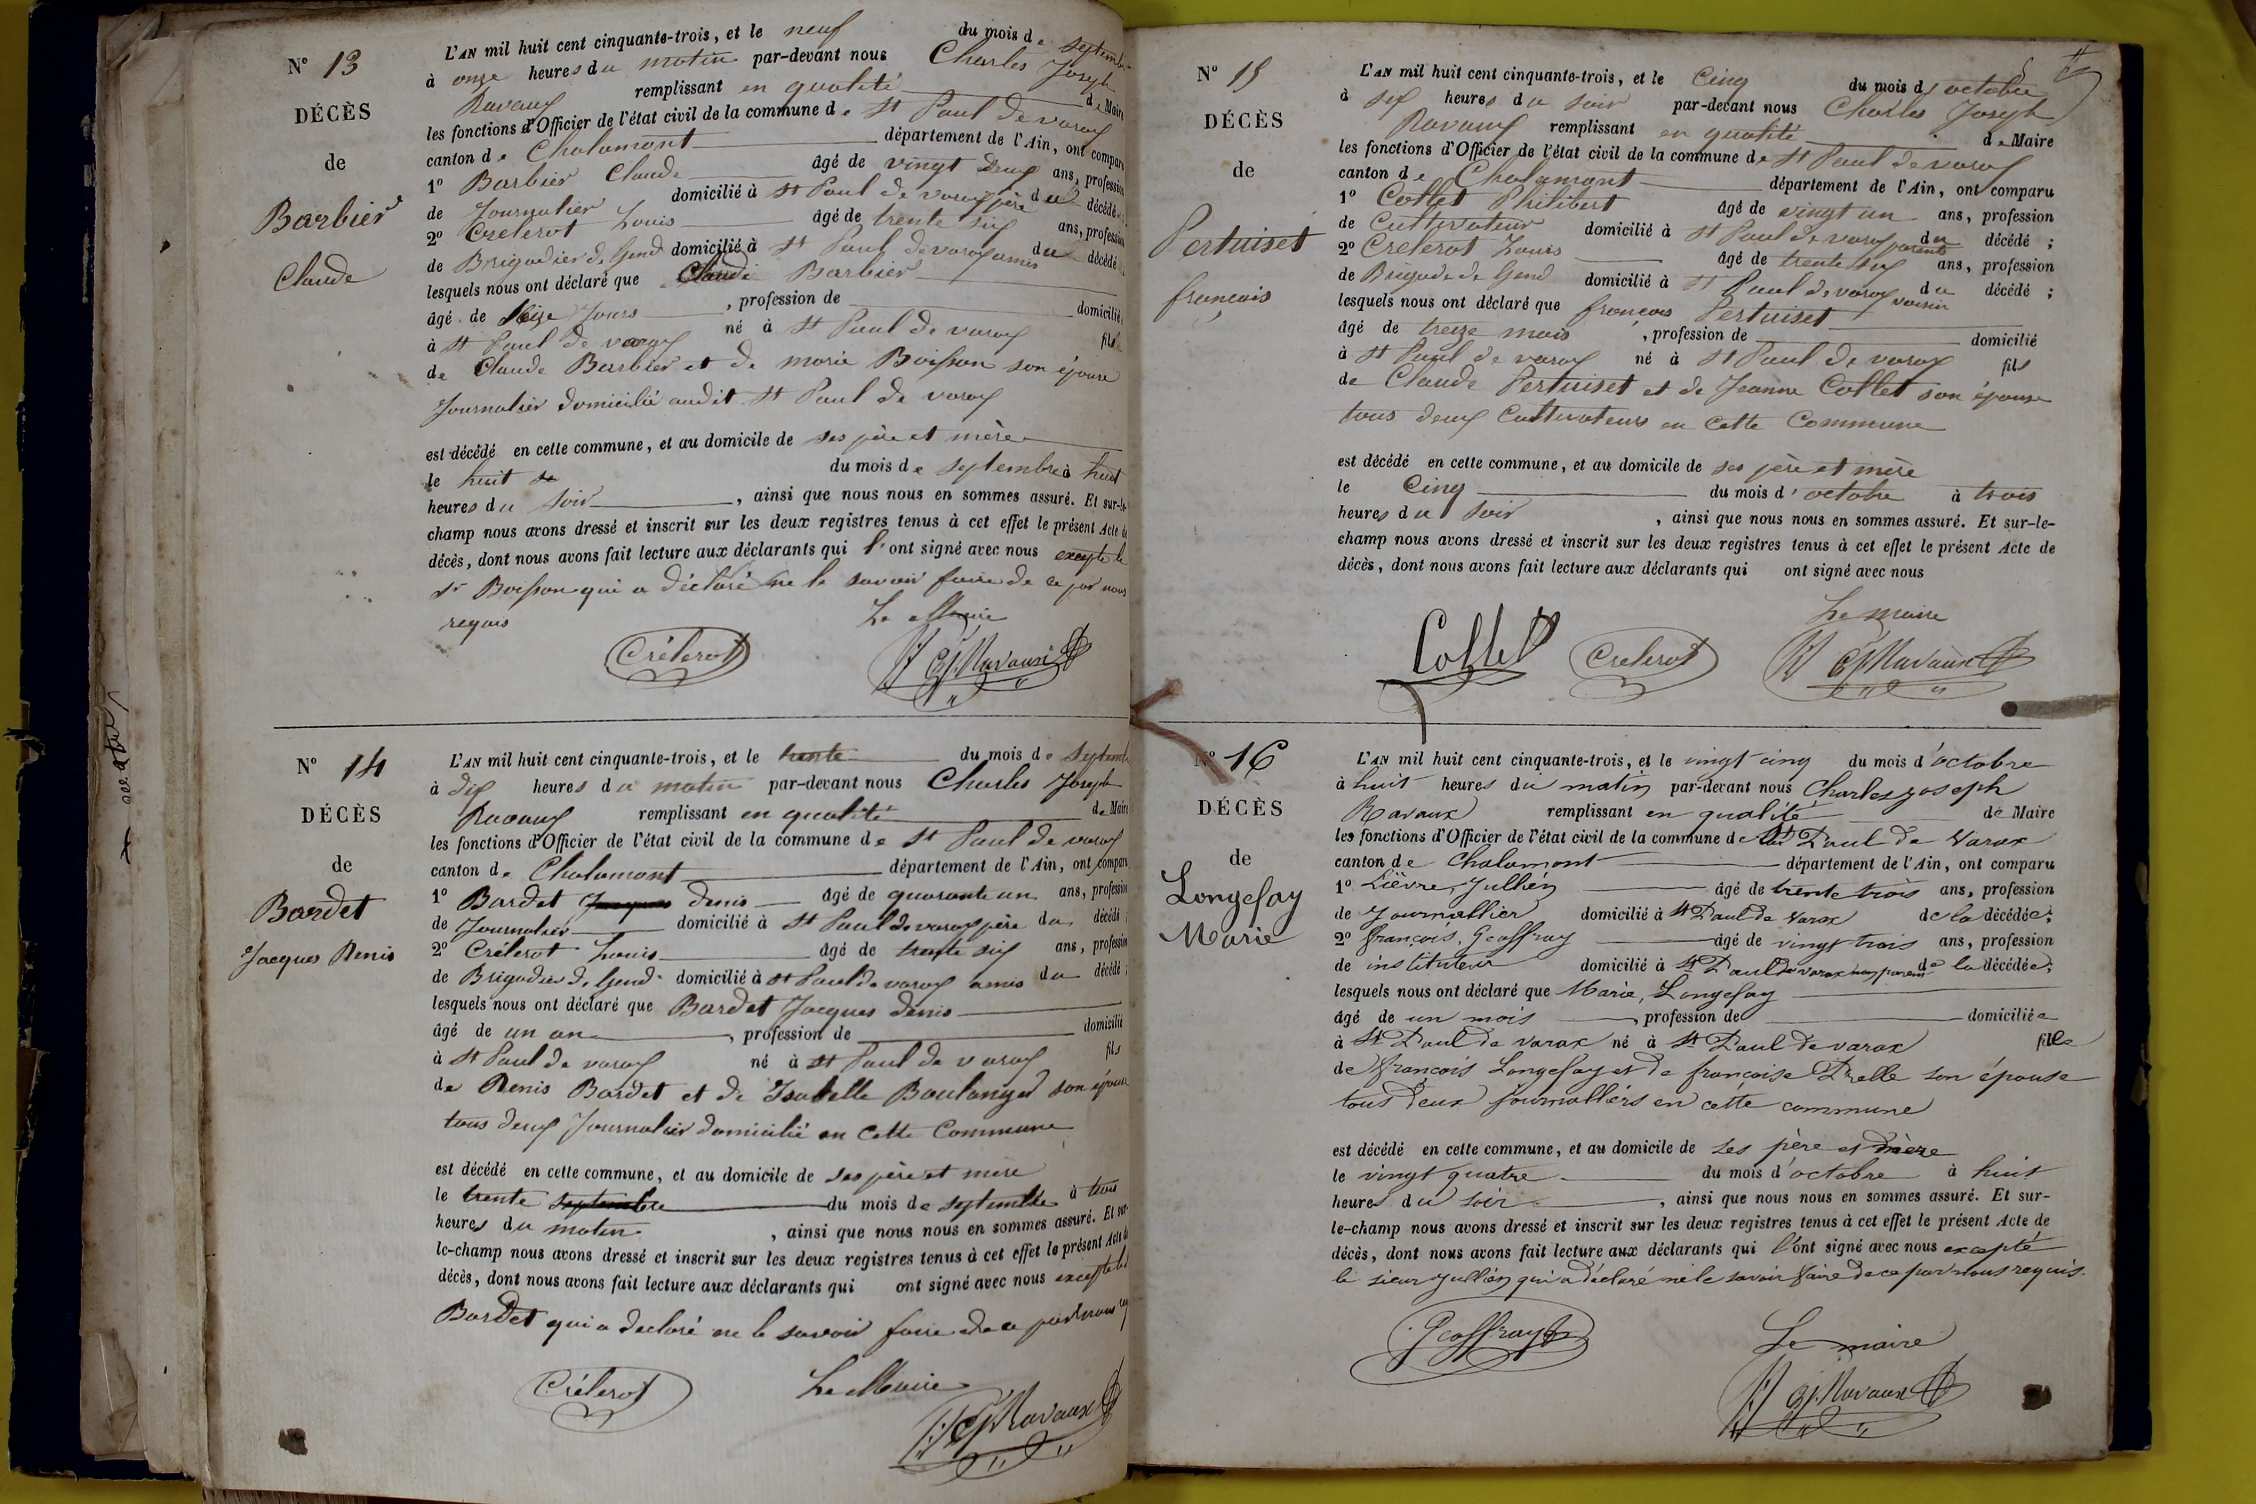 N° 13
DÉCÈS
de
Barbier
Claude
L'AN mil huit cent cinquante-trois, et le neuf du mois de septembre
à onze heures du matin par-devant nous Charles Joseph
Ravaux remplissant en qualité de Maire
les fonctions d'Officier de l'état civil de la commune de St Paul de varax
canton de Chalamont département de l'Ain, ont comparu
1° Barbier Claude âgé de vingt Deux ans, profession
de Journalier domicilié à St Paul de varax père du décédé;
2° Crelerot Louis âgé de trente six ans, profession
de Brigadier de Gend. domicilié à St Paul de varax amis du décédé
lesquels nous ont déclaré que Claude Barbier
âgé de Seize Jours , profession de domicilié
à St Paul de varax né à St Paul de varax fils
de Claude Barbier et de marie Boisson son épouse
Journalier domicilié audit St Paul de varax
est décédé en cette commune, et au domicile de ses père et mère
le huit du mois de septembre à huit
heures du soir , ainsi que nous nous en sommes assuré. Et sur-le-
champ nous avons dressé et inscrit sur les deux registres tenus à cet effet le présent Acte de
décès, dont nous avons fait lecture aux déclarants qui l'ont signé avec nous excepté le
sr Boisson qui a déclaré ne le savoir faire de ce par nous
requis
Le Maire
Crélerot CJ Ravaux
N° 14
DÉCÈS
de
Bardet
Jacques Denis
L'AN mil huit cent cinquante-trois, et le trente du mois de septembre
à dix heures du matin par-devant nous Charles Joseph
Ravaux remplissant en qualité de Maire
les fonctions d'Officier de l'état civil de la commune de St Paul de varax
canton de Chalamont département de l'Ain, ont comparu
1° Bardet Jacques denis âgé de quarante un ans, profession
de Journalier domicilié à St Paul de varax père du décédé;
2° Crélerot Louis âgé de trente six ans, profession
de Brigadier de Gend. domicilié à St Paul de varax amis du décédé;
lesquels nous ont déclaré que Bardet Jacques denis
âgé de un an , profession de domicilié
à St Paul de varax né à St Paul de varax fils
de Denis Bardet et de Isabelle Boulanger son épouse
tous deux Journalier domicilié en cette Commune
est décédé en cette commune, et au domicile de ses père et mère
le trente septembre du mois de septembre à trois
heures du matin , ainsi que nous nous en sommes assuré. Et sur-
le-champ nous avons dressé et inscrit sur les deux registres tenus à cet effet le présent Acte de
décès, dont nous avons fait lecture aux déclarants qui ont signé avec nous excepté le
Bardet qui a declaré ne le savoir faire de ce par nous
Crélerot Le Maire
CJ Ravaux
N° 15
DÉCÈS
de
Pertuiset
françois
L'AN mil huit cent cinquante-trois, et le Cinq du mois d'octobre
à six heures du soir par-devant nous Charles Joseph
Ravaux remplissant en qualité de Maire
les fonctions d'Officier de l'état civil de la commune de St Paul de varax
canton de Chalamont département de l'Ain, ont comparu
1° Collet Philibert âgé de vingt un ans, profession
de Cultivateur domicilié à St Paul de varax parents du décédé;
2° Crelerot Louis âgé de trente six ans, profession
de Brigade de Gend domicilié à St Paul de varax voisin du décédé;
lesquels nous ont déclaré que françois Pertuiset
âgé de treize mois , profession de domicilié
à St Paul de varax né à St Paul de varax fils
de Claude Pertuiset et de Jeanne Collet son épouse
tous deux Cultivateurs en cette Commune
est décédé en cette commune, et au domicile de ses père et mère
le Cinq du mois d'octobre à trois
heures du soir , ainsi que nous nous en sommes assuré. Et sur-le-
champ nous avons dressé et inscrit sur les deux registres tenus à cet effet le présent Acte de
décès, dont nous avons fait lecture aux déclarants qui ont signé avec nous
Le maire
Collet Crelerot CJ Ravaux
N° 16
DÉCÈS
de
Longefay
Marie
L'AN mil huit cent cinquante-trois, et le vingt cinq du mois d'octobre
à huit heures du matin par-devant nous Charles joseph
Ravaux remplissant en qualité de Maire
les fonctions d'Officier de l'état civil de la commune de St Paul de Varax
canton de Chalamont département de l'Ain, ont comparu
1° Lièvre, Jullien âgé de trente trois ans, profession
de Journallier domicilié à St Paul de Varax de la décédée;
2° françois, Geoffray âgé de vingt trois ans, profession
de instituteur domicilié à St Paul de varax non parent de la décédée;
lesquels nous ont déclaré que Marie, Longefay
âgé de un mois , profession de domiciliée
à St Paul de varax né à St Paul de varax fille
de françois Longefay et de françoise Drelle son épouse
tous deux journalliers en cette commune
est décédé en cette commune, et au domicile de ses père et mère
le vingt quatre du mois d'octobre à huit
heures du soir , ainsi que nous nous en sommes assuré. Et sur-
le-champ nous avons dressé et inscrit sur les deux registres tenus à cet effet le présent Acte de
décès, dont nous avons fait lecture aux déclarants qui l'ont signé avec nous excepté
le sieur jullien qui a déclaré ne le savoir faire de ce par nous requis.
Geoffray Le maire
CJ Ravaux